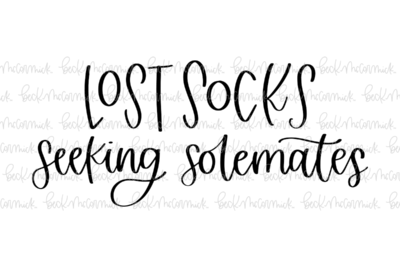 LOST SOCKS
seeking solemates